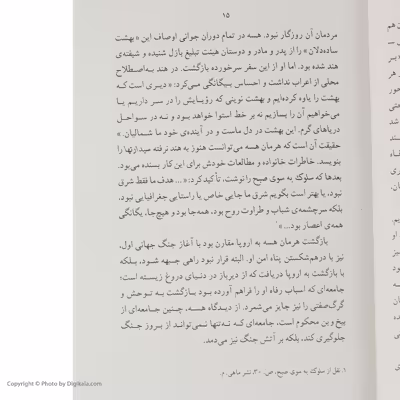 ۱۵
مردمان آن روزگار نبود. هسه در تمام دوران جوانی اوصاف این «بهشت
ساده‌دلان» را از پدر و مادر و دوستان هیئت تبلیغ بازل شنیده و شیفته‌ی
هند شده بود. اما او از این سفر سرخورده بازگشت. در هند به‌اصطلاح
محلی از اعراب نداشت و احساس بیگانگی می‌کرد: «دیری است که
بهشت را یاوه کرده‌ایم و بهشت نویی که رؤیایش را در سر داریم یا
می‌خواهیم آن را بسازیم نه بر خط استوا خواهد بود و نه در سواحل
دریاهای گرم. این بهشت در دل ماست و در آینده‌ی خود ما شمالیان.»
حقیقت آن است که هرمان هسه می‌توانست هنوز به هند نرفته سیدارتها را
بنویسد. خاطرات خانواده و مطالعات خودش برای این کار بسنده می‌بود.
بعدها که سلوک به سوی صبح را نوشت، تأکید کرد: «... هدف ما فقط شرق
نبود، یا بهتر است بگویم شرق ما جایی خاص یا راستایی جغرافیایی نبود،
بلکه سرچشمه‌ی شباب و طراوت روح بود، همه‌جا بود و هیچ‌جا، یگانگی
همه‌ی اعصار بود...»۱
بازگشت هرمان هسه به اروپا مقارن بود با آغاز جنگ جهانی اول،
نیز با درهم‌شکستن پناه امن او. البته قرار نبود راهی جبهه شود، بلکه
با بازگشت به اروپا دریافت که از دیرباز در دنیای دروغ زیسته است؛
جامعه‌ای که اسباب رفاه او را فراهم آورده بود بازگشت به توحش و
گرگ‌صفتی را نیز جایز می‌شمرد. از دیدگاه هسه، چنین جامعه‌ای از
بیخ و بن محکوم است، جامعه‌ای که نه‌تنها نمی‌تواند از بروز جنگ
جلوگیری کند، بلکه بر آتش جنگ نیز می‌دمد.
۱. نقل از سلوک به سوی صبح، ص. ۳۰، نشر ماهی. م.
Copyright © Photo by Digikala.com